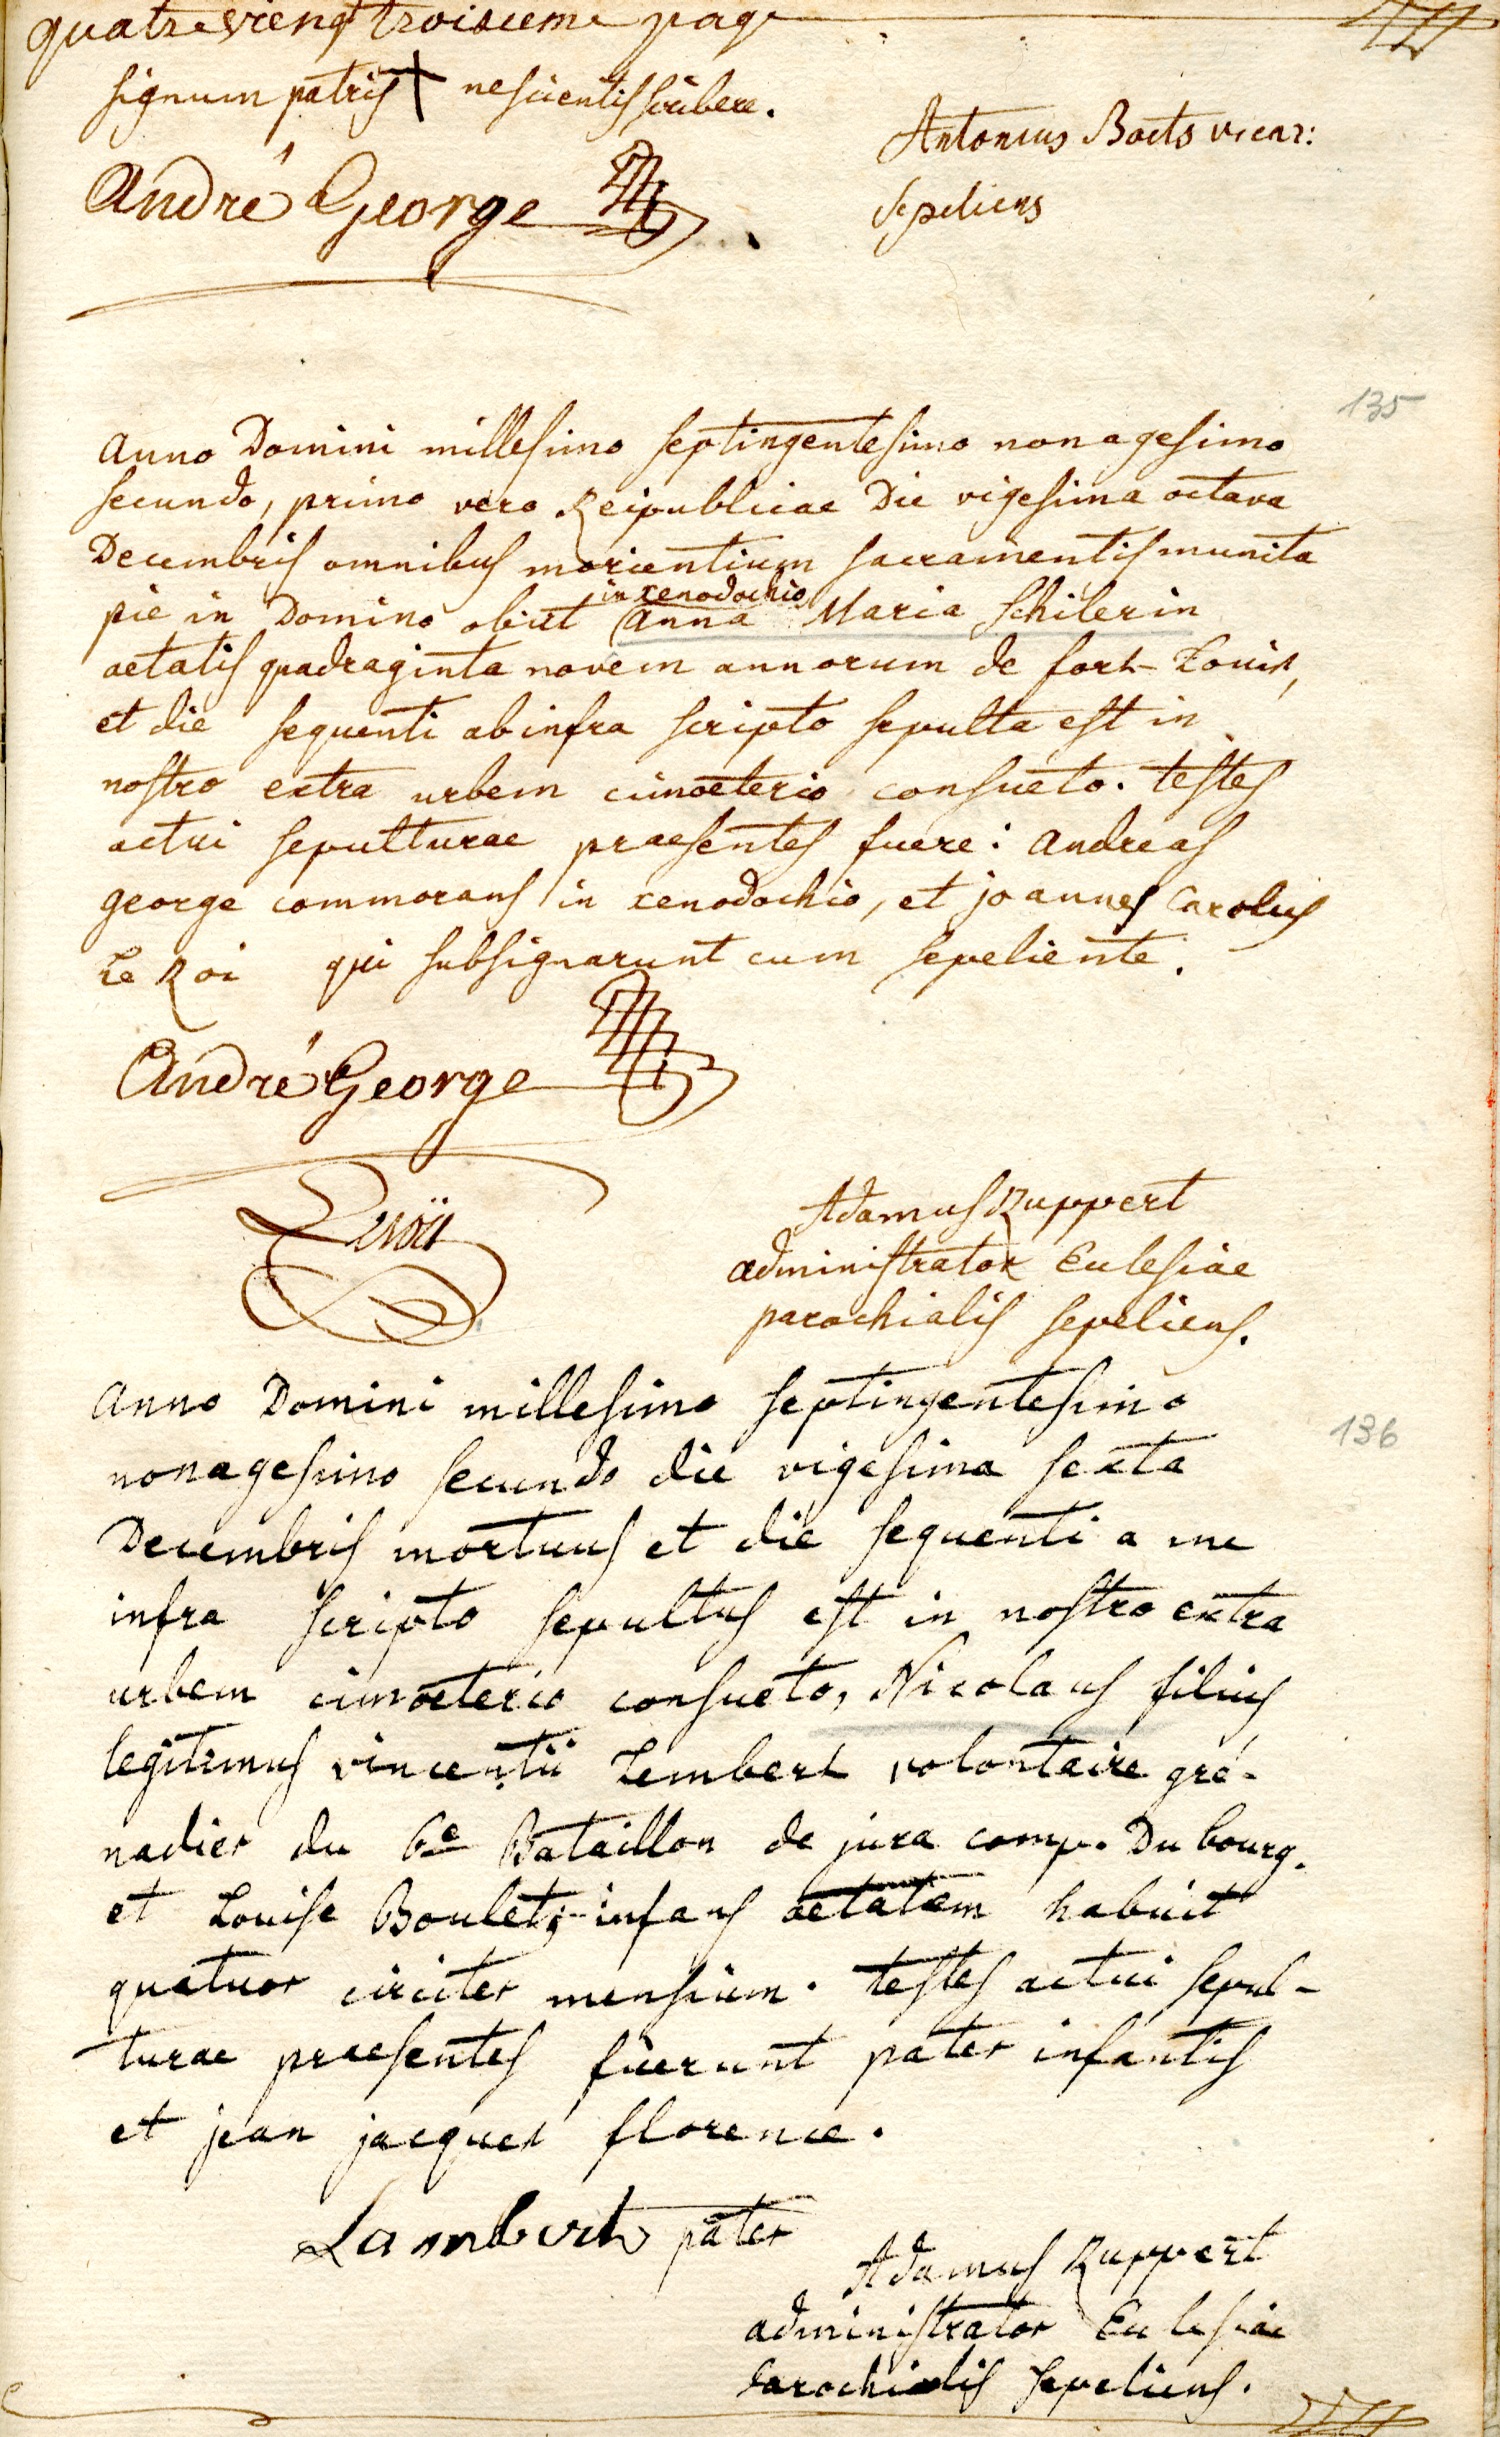 quatreviengt troisieme page
signum patris + nescientis scribere.
Antonius Boets vicar:
sepeliens
André George
135
Anno Domini millesimo septingentesimo nonagesimo
secundo, primo vero Reipublicae Die vigesima octava
Decembris omnibus morientium sacramentis munita
in xenodochio
pie in Domino obiit Anna Maria Schilerin
aetatis quadraginta novem annorum de fort-Louis,
et die sequenti ab infra scripto sepulta est in
nostro extra urbem cimoeterio consueto. testes
actui sepulturae praesentes fuere: Andreas
george commorans in xenodochio, et joannes Carolus
Le Roi qui subsignarunt cum sepeliente.
André George
Adamus Ruppert
administrator Eclesiae
parochialis sepeliens.
Anno Domini millesimo septingentesimo
136
nonagesimo secundo die vigesima sexta
Decembris mortuus et die sequenti a me
infra scripto sepultus est in nostro extra
urbem cimoeterio consueto, Nicolaus filius
legitimus vincentii Lembert volontaire gré-
nadier du 6e Bataillon de jura comp. Du bourg.
et Louise Boulet; infans aetatem habuit
quatuor circiter mensium. testes actui sepul-
turae praesentes fuerunt pater infantis
et jean jacques florence.
Lambert pater
Adamus Ruppert
administrator Eclesiae
parochialis sepeliens.